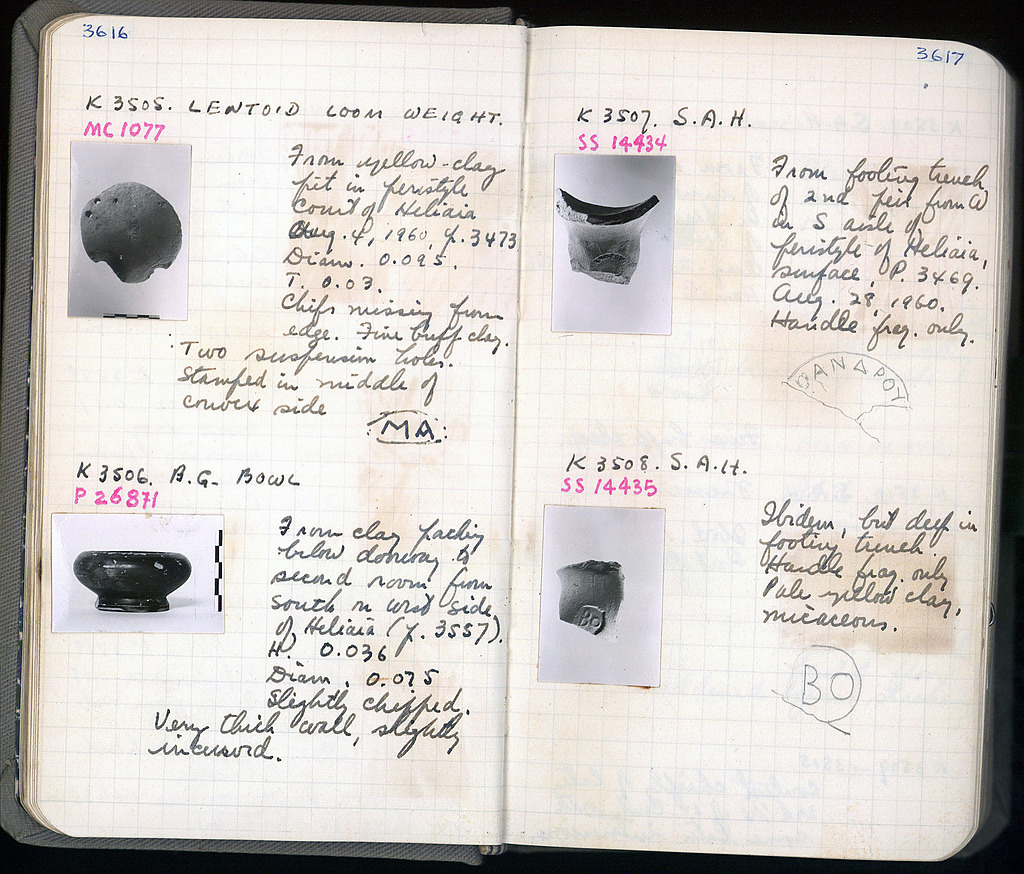 3616
K 3505. LENTOID LOOM WEIGHT.
MC 1077
From yellow-clay
pit in peristyle
court of Heliaia
Aug. 4, 1960, p. 3473
Diam. 0.095.
T. 0.03.
Chips missing from
edge. Fine buff clay.
Two suspension holes.
Stamped in middle of
convex side
MA
K 3506. B.G. BOWL
P 26871
From clay packing
below doorway to
second room from
south on west side
of Heliaia (p. 3557).
H. 0.036
Diam. 0.075
Slightly chipped.
Very thick wall, slightly
incurved.
3617
K 3507. S.A.H.
SS 14434
From footing trench
of 2nd pier from W
in S aisle of
peristyle of Heliaia,
surface, P. 3469.
Aug. 28, 1960.
Handle frag. only.
ΑΝΔΡΟΥ
K 3508. S.A.H.
SS 14435
Ibidem, but deep in
footing trench.
Handle frag. only
Pale yellow clay,
micaceous.
BO
BO